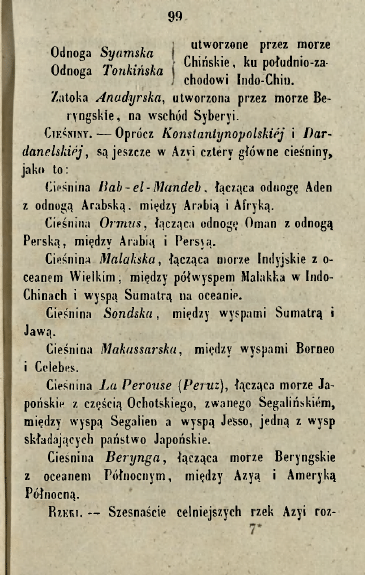 99
Odnoga Syamska
Odnoga Tonkińska
utworzone przez morze
Chińskie, ku południo-za-
chodowi Indo-Chin.
Zatoka Anadyrska, utworzona przez morze Be-
ryngskie, na wschód Syberyi.
CIEŚNINY. — Oprócz Konstantynopolskiéj i Dar-
danelskiéj, są jeszcze w Azyi cztery główne cieśniny,
jako to:
Cieśnina Bab-el-Mandeb, łącząca odnogę Aden
z odnogą Arabską, między Arabią i Afryką.
Cieśnina Ormus, łącząca odnogę Oman z odnogą
Perską, między Arabią i Persyą.
Cieśnina Malakska, łącząca morze Indyjskie z o-
ceanem Wielkim, między półwyspem Malakka w Indo-
Chinach i wyspą Sumatrą na oceanie.
Cieśnina Sondska, między wyspami Sumatrą i
Jawą.
Cieśnina Makassarska, między wyspami Borneo
i Celebes.
Cieśnina La Perouse (Peruz), łącząca morze Ja-
pońskie z częścią Ochotskiego, zwanego Segalińskiém,
między wyspą Segalien a wyspą Jesso, jedną z wysp
składających państwo Japońskie.
Ciesnina Berynga, łącząca morze Beryngskie
z oceanem Północnym, między Azyą i Ameryką
Północną.
RZEKI. — Szesnaście celniejszych rzek Azyi roz-
7*